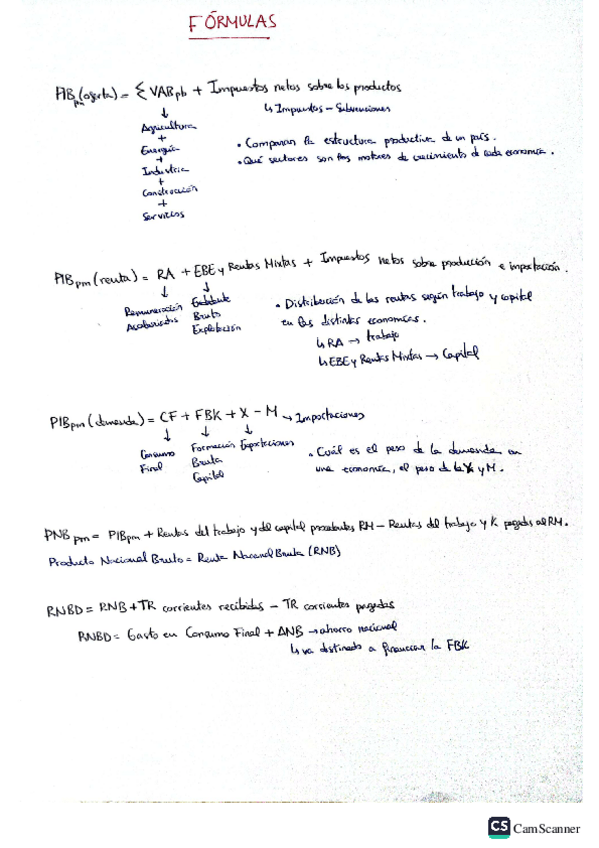 FÓRMULAS
PIBpm (oferta) = Σ VABpb + Impuestos netos sobre los productos
↳ Impuestos - Subvenciones
↓
Agricultura
+
Energía
+
Industria
+
Construcción
+
Servicios
• Comparan la estructura productiva de un país.
• Qué sectores son los motores de crecimiento de cada economía.
PIBpm (renta) = RA + EBE y Rentas Mixtas + Impuestos netos sobre producción e importación.
↓ ↓
Remuneración Asalariados
Excedente Bruto Explotación
• Distribución de las rentas según trabajo y capital
en las distintas economías.
↳ RA → trabajo
↳ EBE y Rentas Mixtas → Capital
PIBpm (demanda) = CF + FBK + X - M → Importaciones
↓ ↓ ↓
Consumo Final
Formación Bruta Capital
Exportaciones
• Cuál es el peso de la demanda en
una economía, el peso de la X y M.
PNBpm = PIBpm + Rentas del trabajo y del capital procedentes RM - Rentas del trabajo y K pagadas al RM.
Producto Nacional Bruto = Renta Nacional Bruta (RNB)
RNBD = RNB + TR corrientes recibidas - TR corrientes pagadas
RNBD = Gasto en Consumo Final + ANB → ahorro nacional
↳ va destinado a financiar la FBK
CS CamScanner